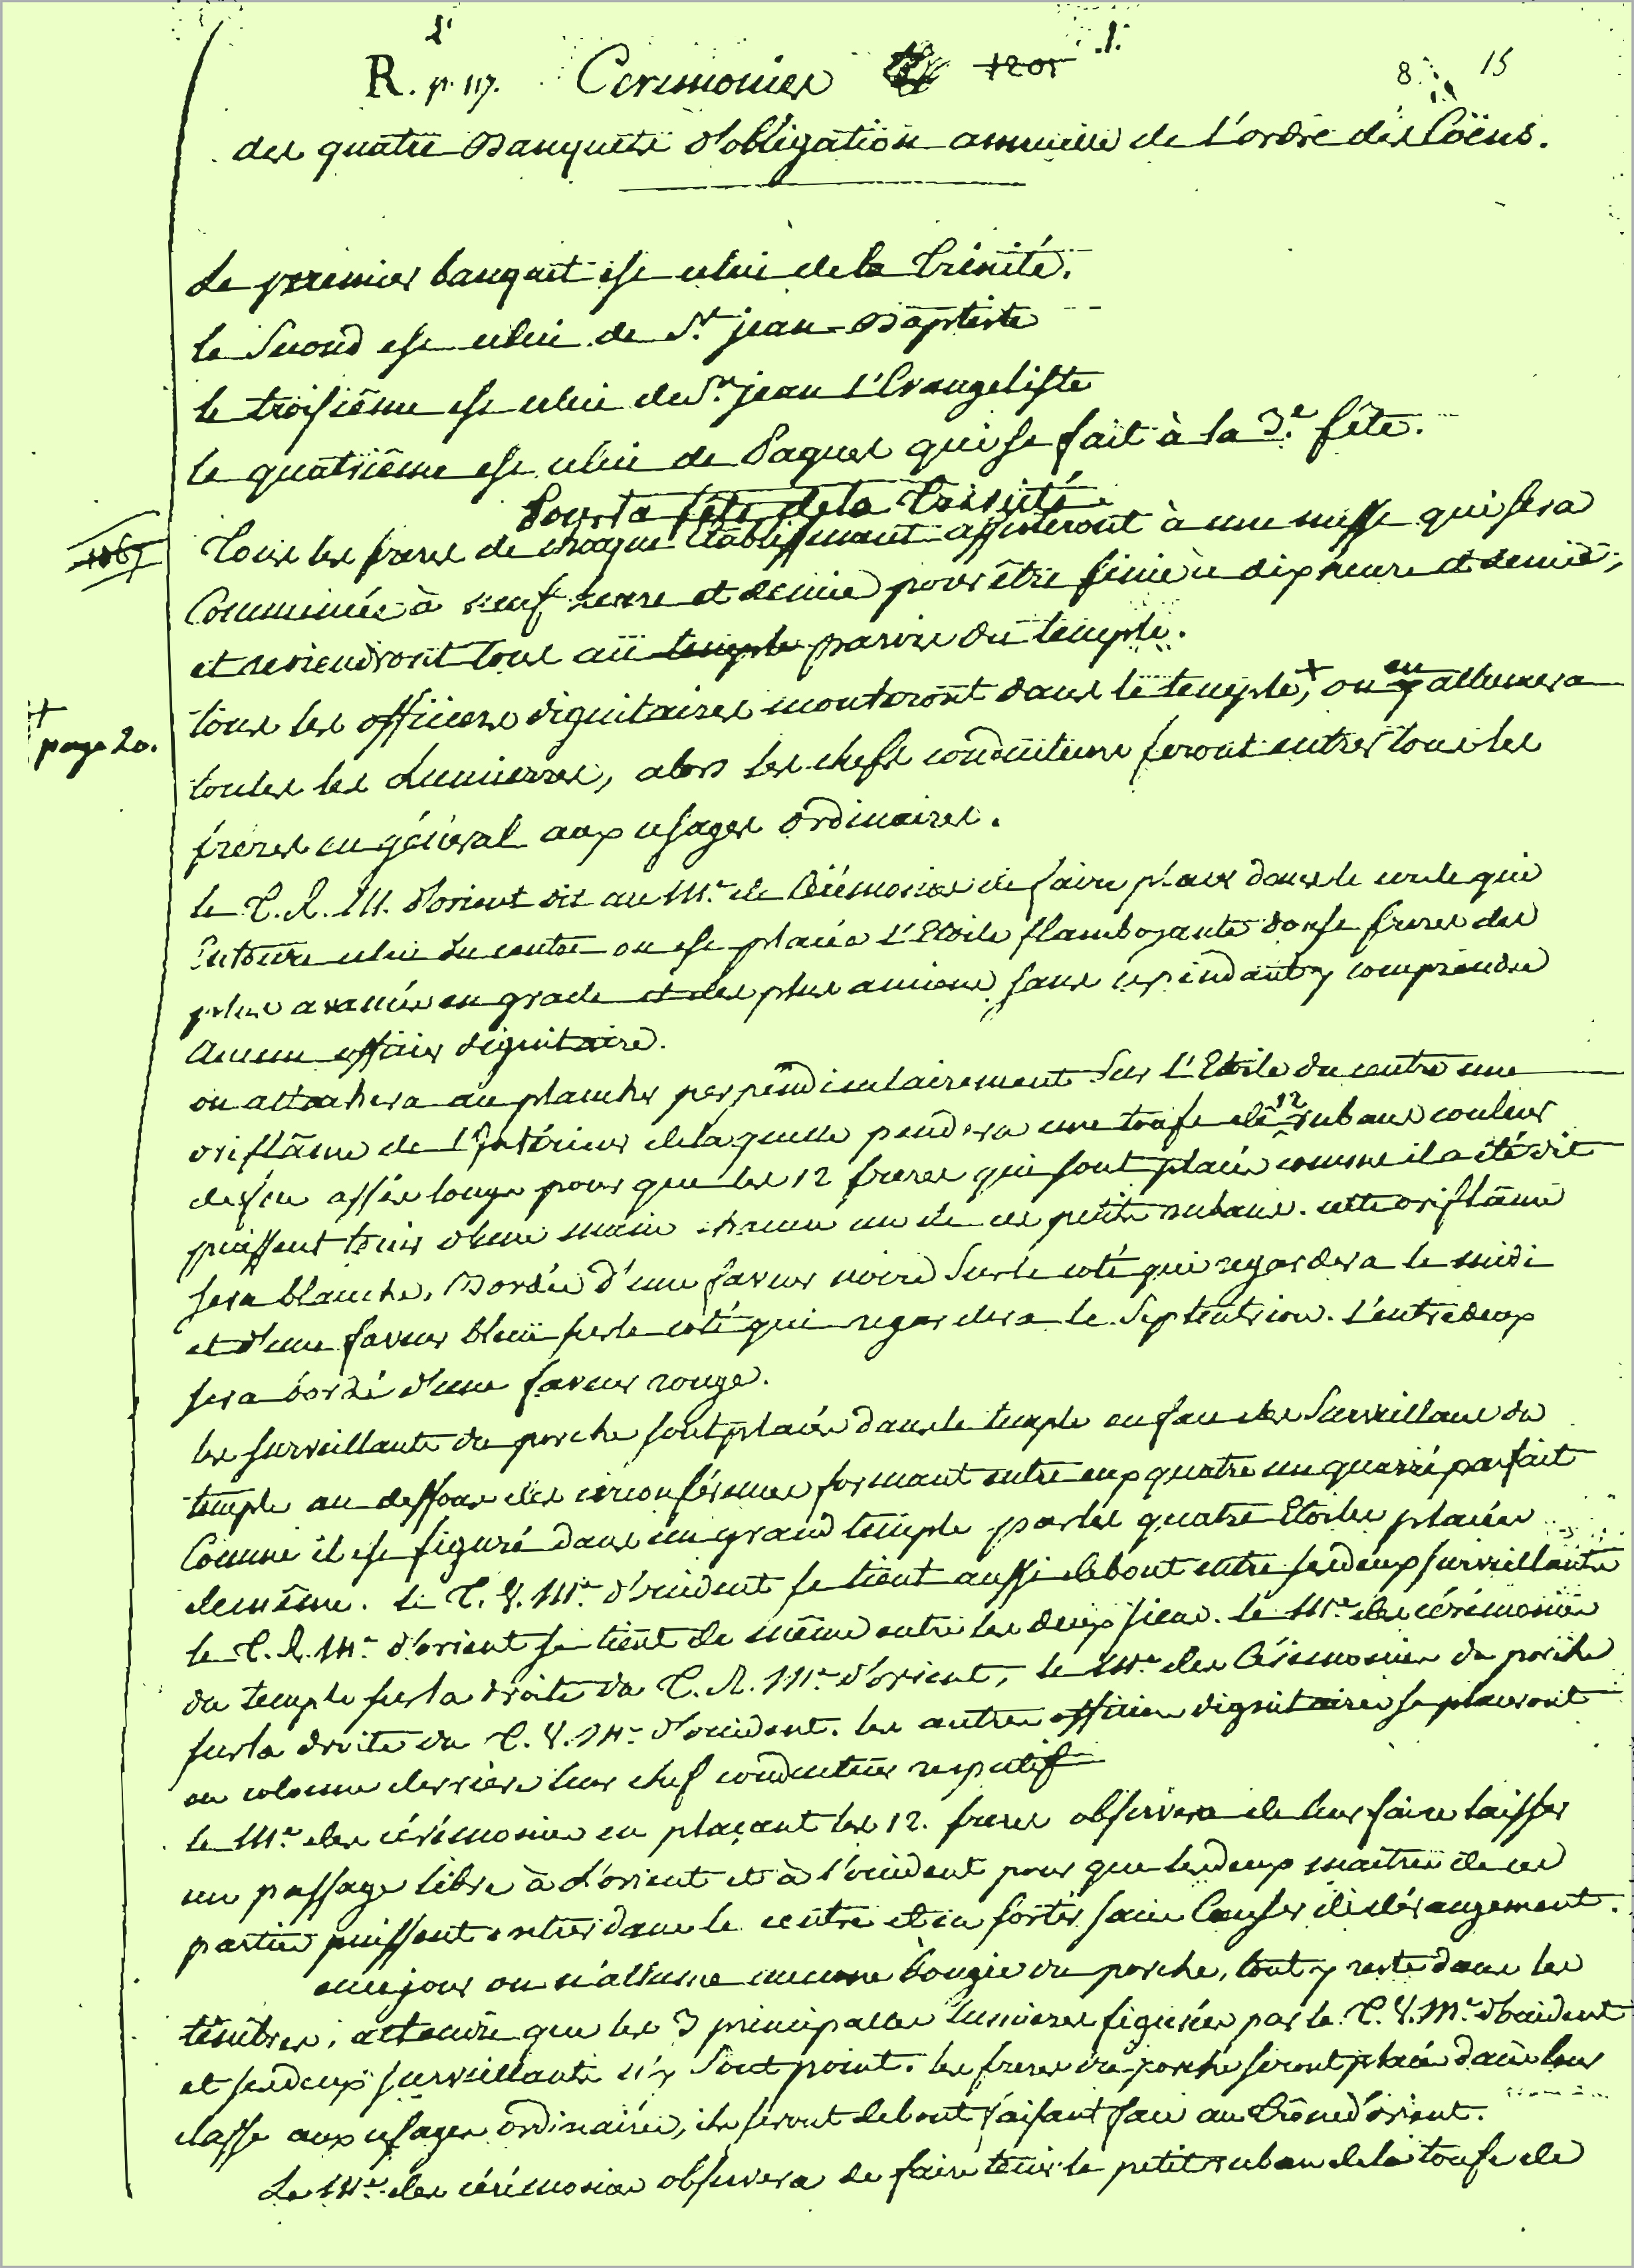 1.
R. p. 117. Ceremonies 1201 8. 15
des quatre Banquets d'obligation annuelle de L'ordre des Coëns.
Le premier banquet est celui de la Trinité.
le Second est celui de St. jean-Baptiste
le troisiême est celui de St. jean L'Evangeliste
le quatriême est celui de Paques qui se fait à la 3.e fête.
Pour la fête de la Trinité
Tous les freres de chaque Etablissement assisteront à une messe qui sera
Commencée à neuf heure et demie pour être finie à dix heure et demie,
et reviendront tous au temple parvis du temple.
tous les officiers dignitaires monteront dans le temple,+ on en y allumera
+
page 20.
toutes les Lumierres, alors les chefs conducteurs feront entrer tous les
freres en général aux usages ordinaires.
le T. R. M. d'orient dit au Me. de Cérémonies de faire placer dans le cercle qui
Entoure celui du centre ou est placée L'Etoile flamboyante douse freres des
plus avancés en grade et des plus anciens sans cependant y comprendre
Aucun officier dignitaire.
on attachera au plancher perpendiculairement Sur L'Etoile du centre une
oriflâme de L'Intérieur de laquelle pendera une toufe de 12 rubans couleur
de feu assés longs pour que les 12 freres qui sont placés comme il a été dit
puissent tenir d'une main chacun un de ces petits rubans. cette oriflâme
sera blanche, Bordée d'une faveur noire Sur le coté qui regardera le midi
et d'une faveur bleuë sur le coté qui regardera le Septentrion. L'entredeux
sera bordé d'une faveur rouge.
les surveillants du porche sont placés dans le temple en face des Surveillans du
temple au dessous des circonférences formant entre eux quatre un quarré parfait
Comme il est figuré dans un grand temple par les quatre Etoiles placées
de même. le T. V. Me. d'occident se tient aussi debout entre ses deux surveillants
le T. R. Me. d'orient se tient de même entre les deux siens. le Me. des cérémonies
du temple sur la droite du T. R. Me. d'orient, le Me. des Cérémonies du porche
sur la droite du T. V. Me. d'occident. les autres officiers dignitaires se placeront
en colonne derriere leurs chef conducteur respectif
le Me. des cérémonies en plaçant les 12. freres observera de leur faire laisser
un passage libre à L'orient et à l'occident pour que les deux maitres de ces
parties puissent entrer dans le centre et en sortir sans Causer de dérangement.
ce jour on n'allume aucune bougie du porche, tout y reste dans les
ténébres, attendu que les 3 principalles lumieres figurées par le T. V. Me. d'occident
et ses deux surveillants n'y Sont point. les freres du porche seront placés dans leur
classe aux usages ordinaires, ils seront debout faisant face au Trône d'orient.
Le Me. des cérémonies observera de faire tenir le petit ruban de la toufe de